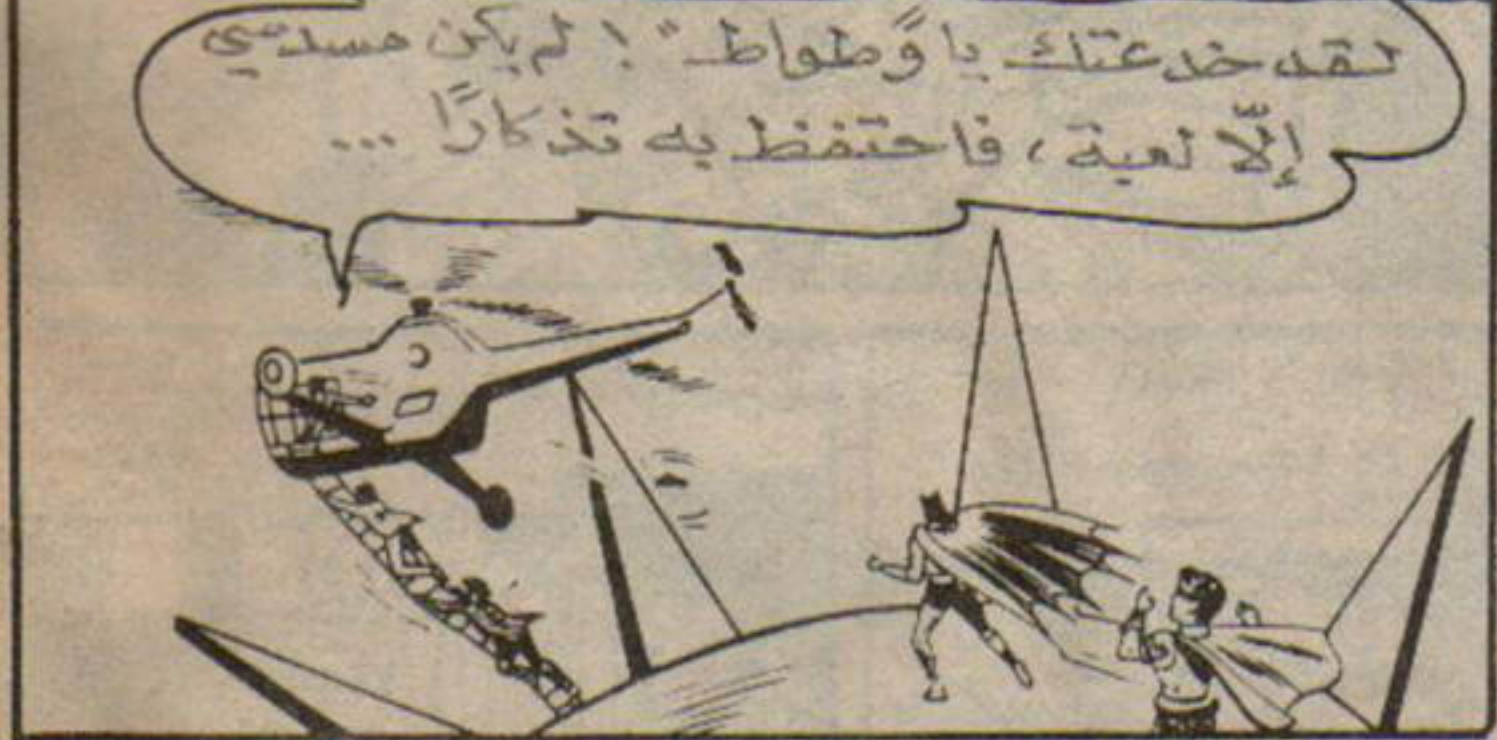 لقد خدعتك يا "وطواط" ! لم يكن مسدسي
إلّا لعبة ، فاحتفظ به تذكارًا ...